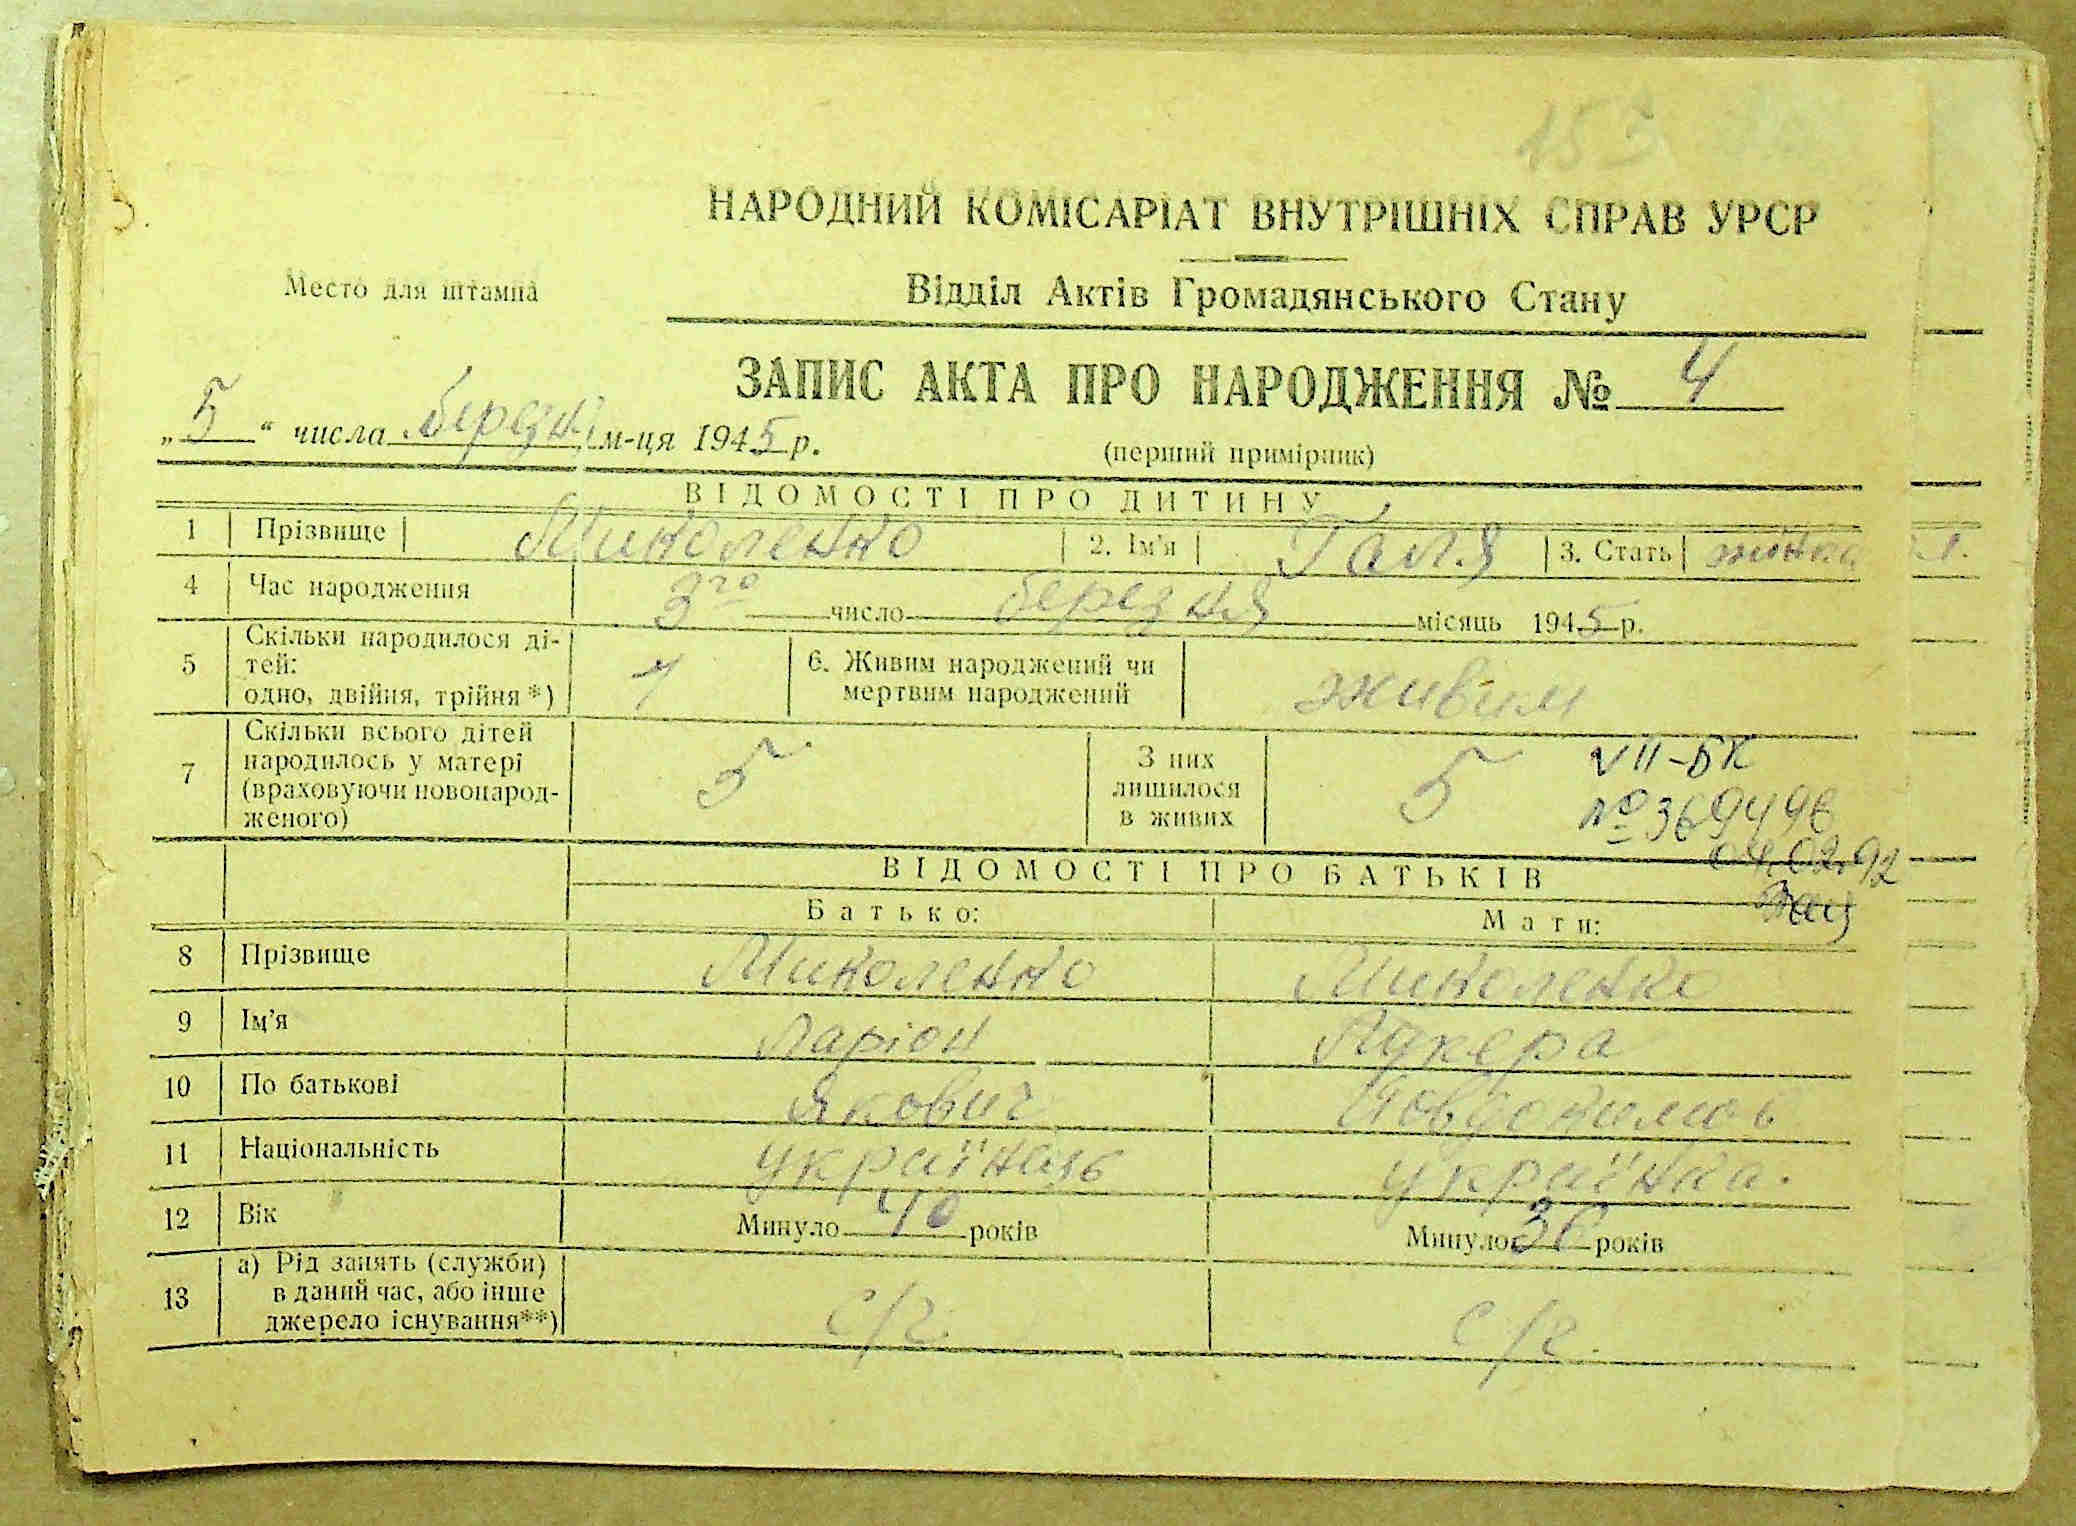 153
НАРОДНИЙ КОМІСАРІАТ ВНУТРІШНІХ СПРАВ УРСР
Место для штампа
Відділ Актів Громадянського Стану
ЗАПИС АКТА ПРО НАРОДЖЕННЯ № 4
„5“ числа березня м-ця 1945 р.
(перший примірник)
ВІДОМОСТІ ПРО ДИТИНУ
1 Прізвище Миколенко 2. Ім'я Галя 3. Стать жінка
4 Час народження 3го число березня місяць 1945 р.
5 Скільки народилося ді-
тей:
одно, двійня, трійня *) 1 6. Живим народжений чи
мертвим народжений живим
7 Скільки всього дітей
народилось у матері
(враховуючи новонарод-
женого) 5 З них
лишилося
в живих 5
VII-БК
№ 369496
04.02.92
ВІДОМОСТІ ПРО БАТЬКІВ
Батько: Мати:
8 Прізвище Миколенко Миколенко
9 Ім'я Ларіон Лукера
10 По батькові Якович
11 Національність українець українка.
12 Вік Минуло 40 років Минуло 36 років
13 а) Рід занять (служби)
в даний час, або інше
джерело існування**) с/г. с/г.